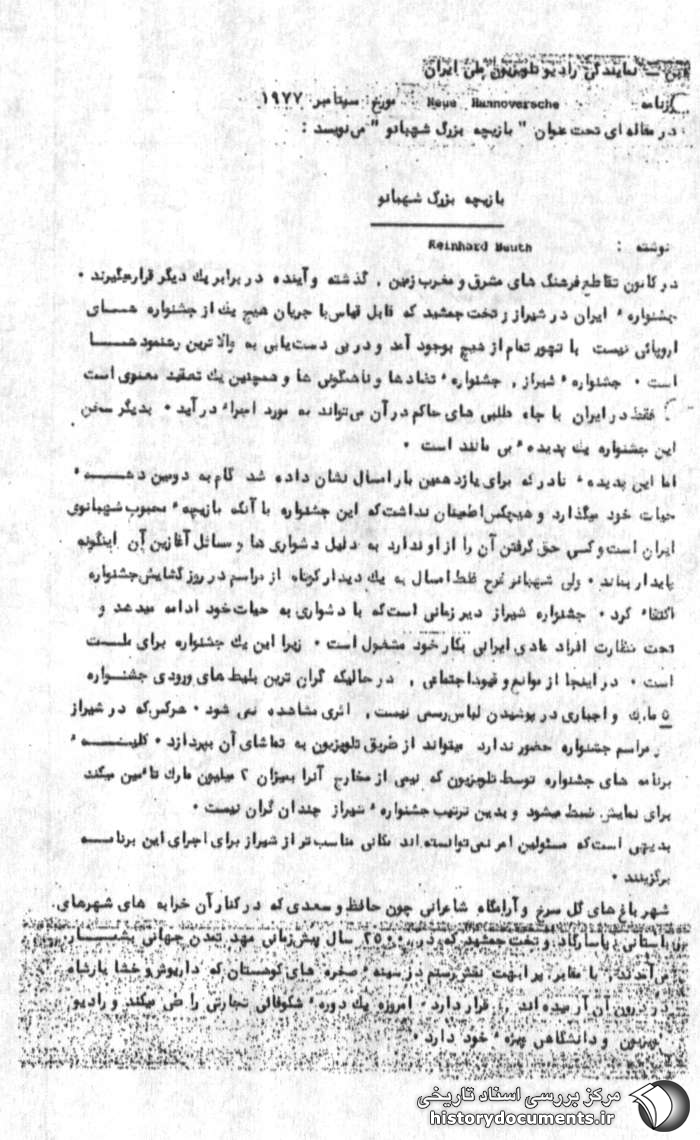 بن — نمایندگی رادیو تلویزیون ملی ایران
روزنامه Neue Hannoversche مورخ سپتامبر ۱۹۷۷
در مقاله ای تحت عنوان " بازیچه بزرگ شهبانو " می‌نویسد :
بازیچه بزرگ شهبانو
نوشته : Reinhard Beuth
در کانون تقاطع فرهنگ های مشرق و مغرب زمین , گذشته و آینده در برابر یک دیگر قرار میگیرند ۰
جشنواره ٔ ایران در شیراز و تخت جمشید که قابل قیاس با جریان هیچ یک از جشنواره هـــای
اروپائی نیست با تهور تمام از هیچ بوجود آمد و در پی دست‌یابی به والاترین رهنمود هـــا
است ۰ جشنواره ٔ شیراز , جشنواره ٔ تضادها و ناهمگونی ها و همچنین یک تعقید معنوی است
فقط در ایران با جاه طلبی های حاکم در آن می‌تواند به مورد اجراء در آید ۰ بدیگر سخن
این جشنواره یک پدیده ٔ بی مانند است ۰
اما این پدیده ٔ نادر که برای یازدهمین بار امسال نشان داده شد گام به دومین دهـــه ٔ
حیات خود میگذارد و هیچکس اطمینان نداشت که این جشنواره با آنکه بازیچه ٔ محبوب شهبانوی
ایران است و کسی حق گرفتن آن را از او ندارد به دلیل دشواری ها و مسائل آغازین آن اینگونه
پایدار بماند ۰ ولی شهبانو فرح فقط امسال به یک دیدار کوتاه از مراسم در روز گشایش جشنواره
اکتفاء کرد ۰ جشنواره شیراز دیر زمانی است که با دشواری به حیات خود ادامه میدهد و
تحت نظارت افراد عادی ایرانی بکار خود مشغول است ۰ زیرا این یک جشنواره برای ملـــت
است ۰ در اینجا از موانع و قیود اجتماعی , در حالیکه گران ترین بلیط های ورودی جشنـــواره
۵ مارک و اجباری در پوشیدن لباس رسمی نیست , اثری مشاهده نمی شود ۰ هرکس که در شیراز
در مراسم جشنواره حضور ندارد میتواند از طریق تلویزیون به تماشای آن بپردازد ۰ کلیـــه ٔ
برنامه های جشنواره توسط تلویزیون که نیمی از مخارج آنرا بمیزان ۲ میلیون مارک تاٴمین میکند
برای نمایش ضبط میشود و بدین ترتیب جشنواره ٔ شیراز چندان گران نیست ۰
بدیهی است که مسئولین امر نمی توانسته اند مکانی مناسب تر از شیراز برای اجرای این برنامـــه
برگزینند ۰
شهر باغ های گل سرخ و آرامگاه شاعرانی چون حافظ و سعدی که در کنار آن خرابه های شهرهای
باستانی , پاسارگاد و تخت جمشید که در ۲۵۰۰ سال پیش زمانی مهد تمدن جهانی بشمـــار
می آمدند , با مقابر پر ابهت نقش رستم در سینه ٔ صخره های کوهستان که داریوش و خشایارشاه
در درون آن آرمیده اند , قرار دارد ۰ امروزه یک دوره ٔ شکوفائی تجارتی را طی میکند و رادیو
تلویزیون و دانشگاهی ویژه ٔ خود دارد ۰
مرکز بررسی اسناد تاریخی
historydocuments.ir